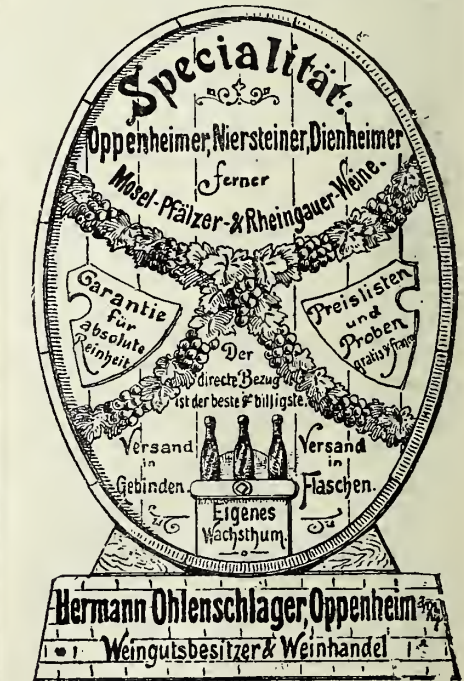 Specialität:
Oppenheimer, Niersteiner, Dienheimer
ferner
Mosel-Pfälzer-& Rheingauer-Weine.
Garantie
für
absolute
Reinheit
Preislisten
und
Proben
gratis & franco
Der
directe Bezug
ist der beste & billigste.
Versand
in
Gebinden
Versand
in
Flaschen.
Eigenes
Wachsthum.
Hermann Ohlenschlager, Oppenheim
Weingutsbesitzer & Weinhandel